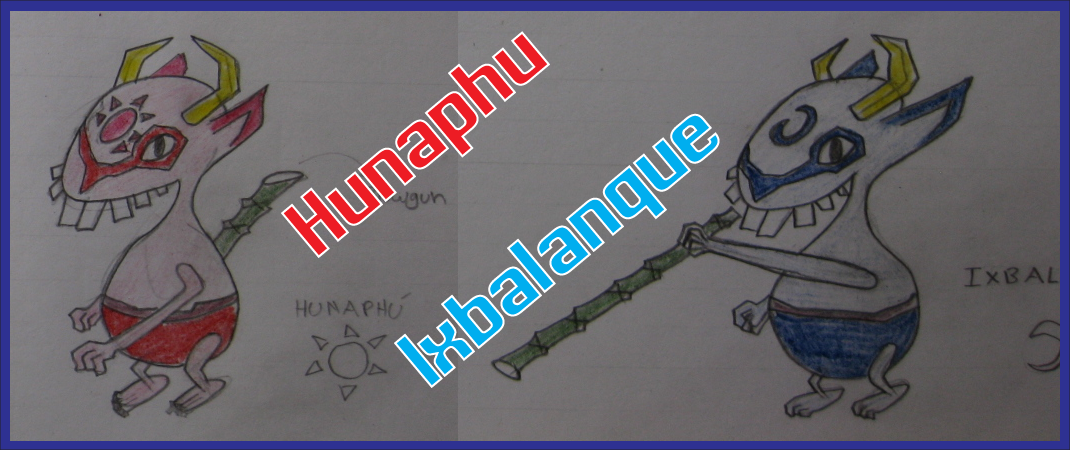 Hunaphu
Ixbalanque
HUNAPHÚ
IXBAL